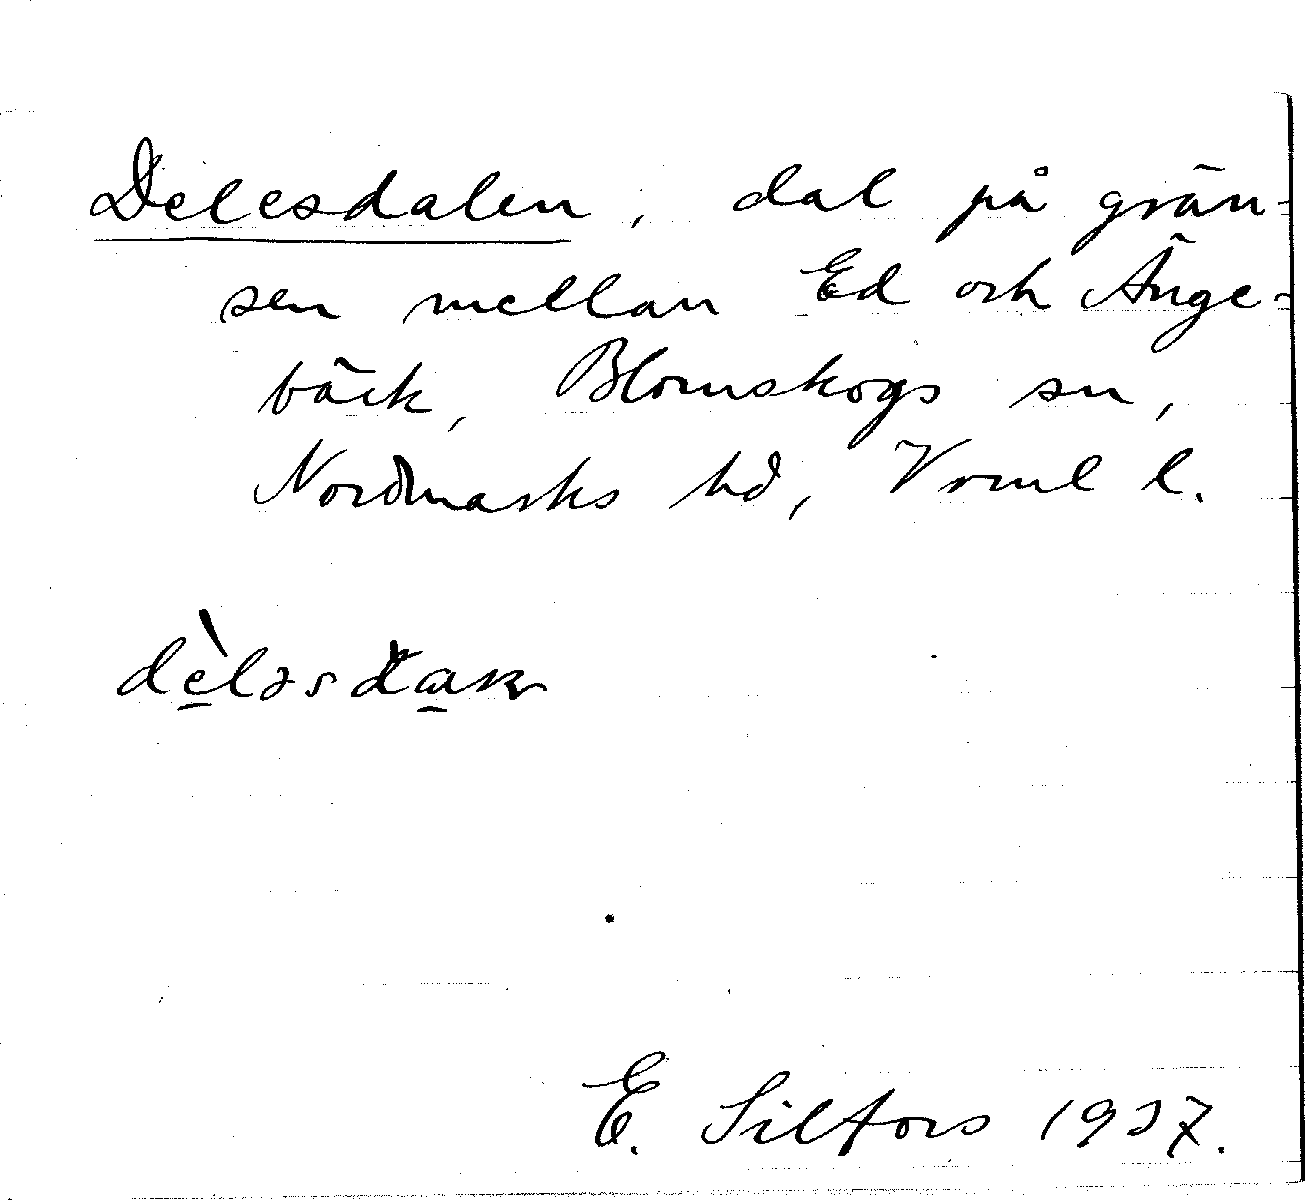 Delesdalen, dal på grän-
sen mellan Ed och Änge-
bäck, Blomskogs sn,
Nordmarks hd, Vrml l.
E. Silfors 1937.